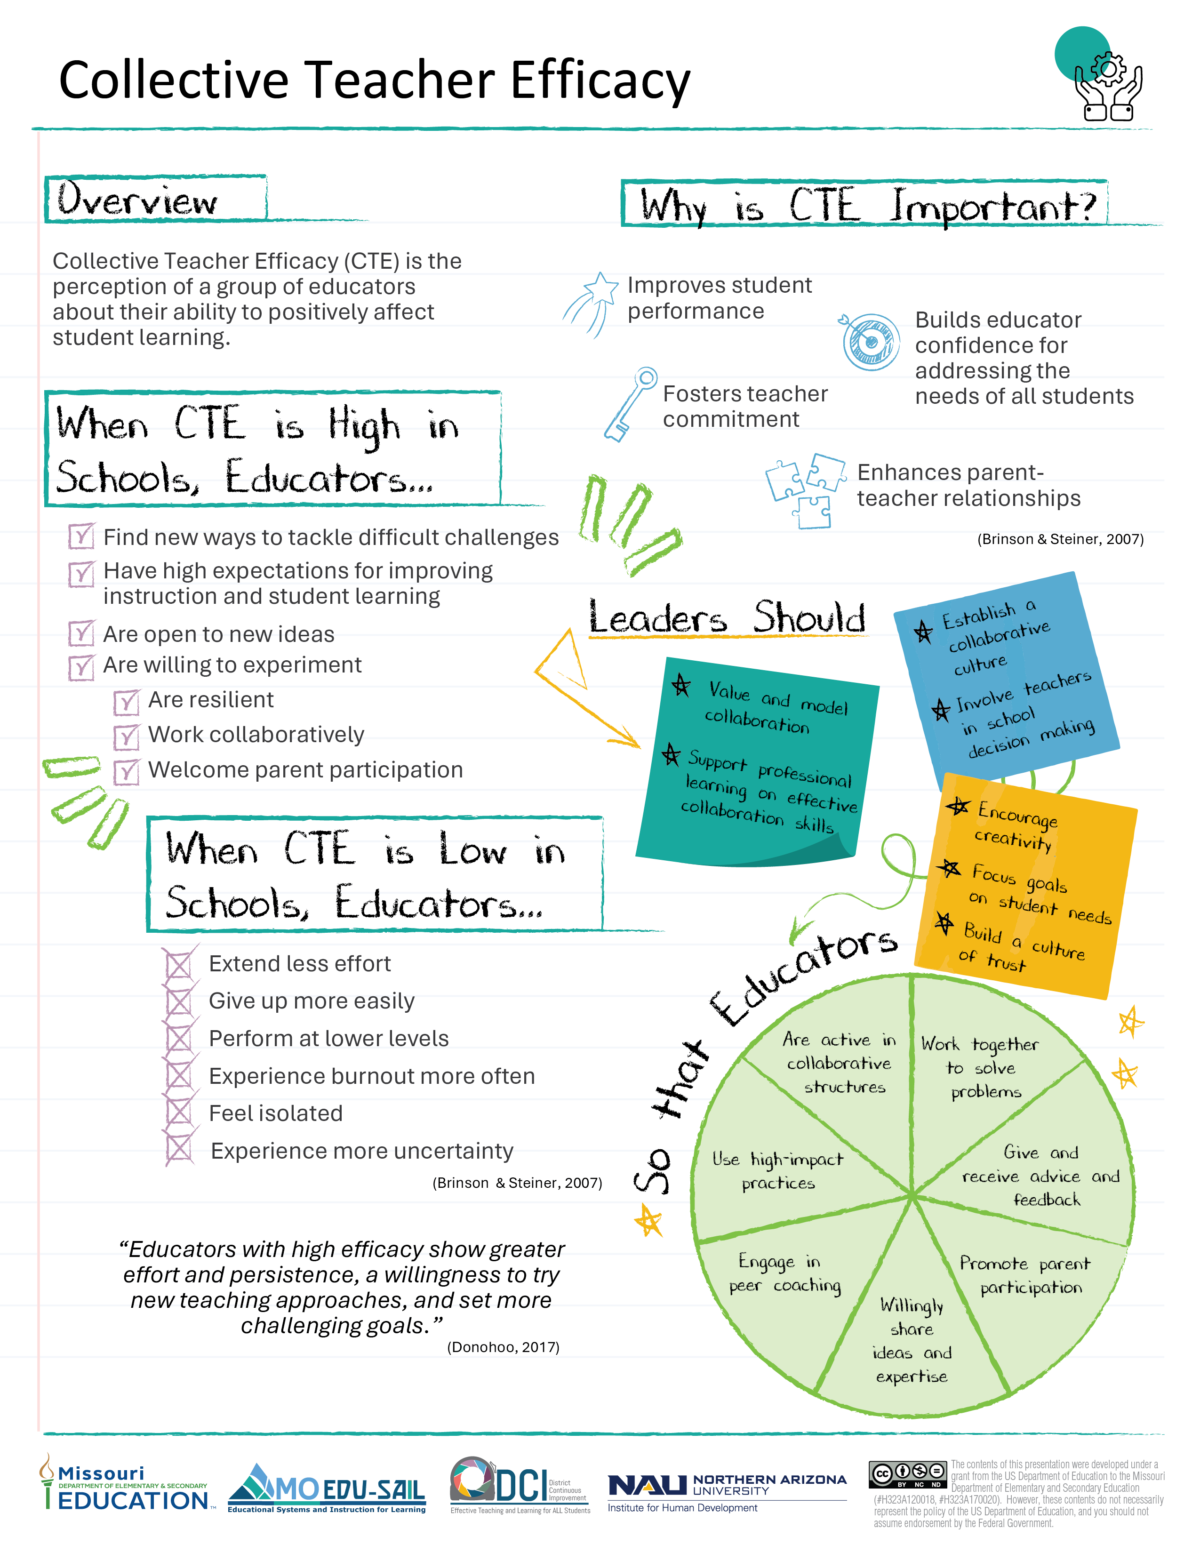 Collective Teacher Efficacy
Overview
Collective Teacher Efficacy (CTE) is the
perception of a group of educators
about their ability to positively affect
student learning.
When CTE is High in
Schools, Educators...
Find new ways to tackle difficult challenges
Have high expectations for improving
instruction and student learning
Are open to new ideas
Are willing to experiment
Are resilient
Work collaboratively
Welcome parent participation
When CTE is Low in
Schools, Educators...
Extend less effort
Give up more easily
Perform at lower levels
Experience burnout more often
Feel isolated
Experience more uncertainty
(Brinson & Steiner, 2007)
“Educators with high efficacy show greater
effort and persistence, a willingness to try
new teaching approaches, and set more
challenging goals.”
(Donohoo, 2017)
Why is CTE Important?
Improves student
performance
Builds educator
confidence for
addressing the
needs of all students
Fosters teacher
commitment
Enhances parent-
teacher relationships
(Brinson & Steiner, 2007)
Leaders Should
Value and model
collaboration
Support professional
learning on effective
collaboration skills
Establish a
collaborative
culture
Involve teachers
in school
decision making
Encourage
creativity
Focus goals
on student needs
Build a culture
of trust
So that Educators
Are active in
collaborative
structures
Work together
to solve
problems
Give and
receive advice and
feedback
Promote parent
participation
Willingly
share
ideas and
expertise
Engage in
peer coaching
Use high-impact
practices
Missouri
DEPARTMENT OF ELEMENTARY & SECONDARY
EDUCATION™
MO EDU-SAIL
Educational Systems and Instruction for Learning
DCI
District
Continuous
Improvement
Effective Teaching and Learning for ALL Students
NAU NORTHERN ARIZONA
UNIVERSITY
Institute for Human Development
cc BY NC ND
The contents of this presentation were developed under a
grant from the US Department of Education to the Missouri
Department of Elementary and Secondary Education
(#H323A120018, #H323A170020). However, these contents do not necessarily
represent the policy of the US Department of Education, and you should not
assume endorsement by the Federal Government.